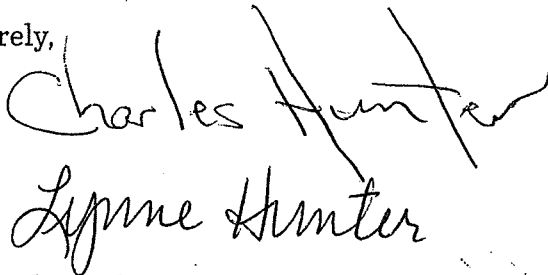 rely,
Charles Hunter
Lynne Hunter